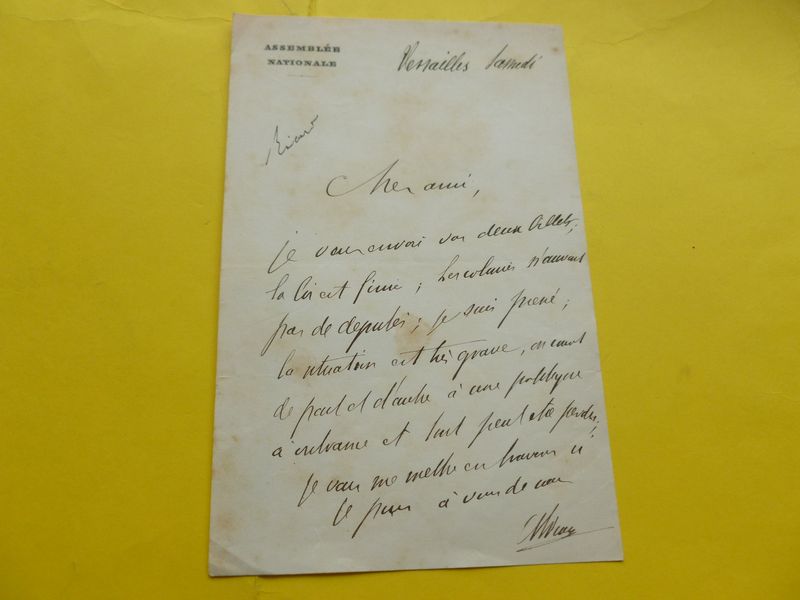 ASSEMBLÉE
NATIONALE
Versailles Samedi
Ricard
Cher ami,
je vous envoi vos deux billets;
la loi est finie; les colonies n'auront
pas de députés; je suis pressé;
la situation est très grave, on court
de part et d'autre à une politique
à outrance et tout peut être perdu,
je vais me mettre en travers
je à vous de